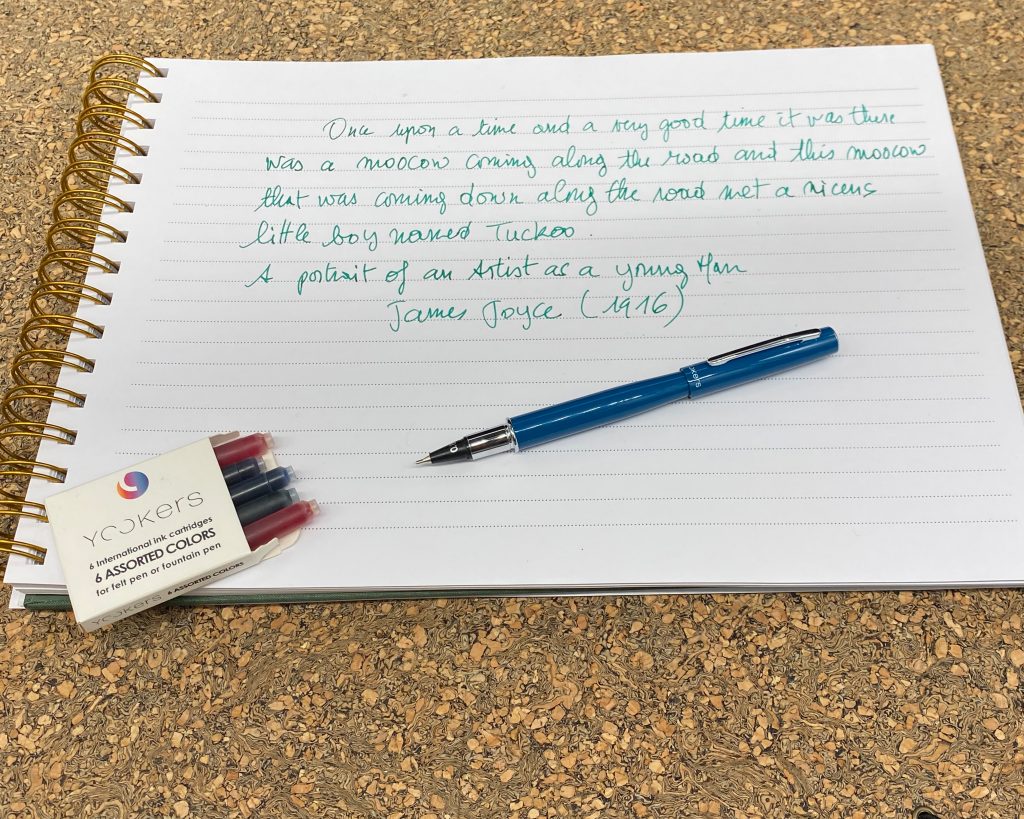 Once upon a time and a very good time it was there
was a moocow coming along the road and this moocow
that was coming down along the road met a nicens
little boy named Tuckoo.
A portrait of an Artist as a young Man
James Joyce (1916)
ookers
YOOKERS
6 International ink cartridges
6 ASSORTED COLORS
for felt pen or fountain pen
YOOKERS 6 ASSORTED COLORS